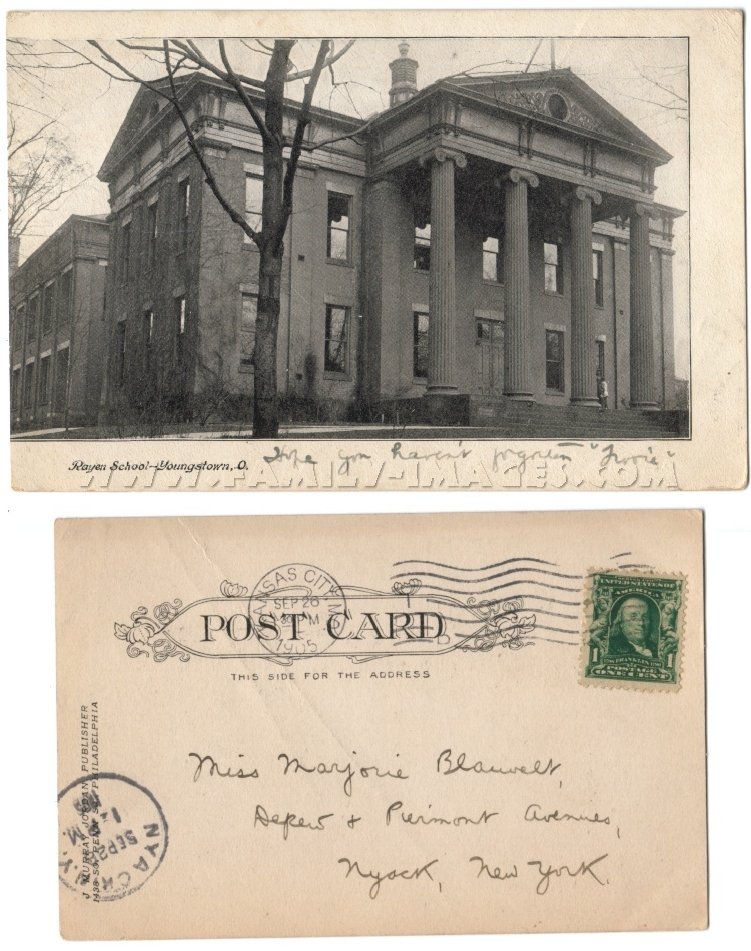 Rayen School—Youngstown, O.
Hope you haven't forgotten
WWW.FAMILY-IMAGES.COM
KANSAS CITY, M
SEP 26
PM
1905
POST CARD
THIS SIDE FOR THE ADDRESS
SERIES 1902
UNITED STATES OF
AMERICA
1 1
FRANKLIN
POSTAGE
ONE CENT
J. MURRAY JORDAN, PUBLISHER
PHILADELPHIA
Miss Marjorie Blauvelt,
Depew & Piermont Avenues,
Nyack, New York.
NYACK
SEP
N.Y.